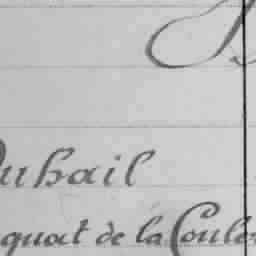 Duhail
quat de la Coule